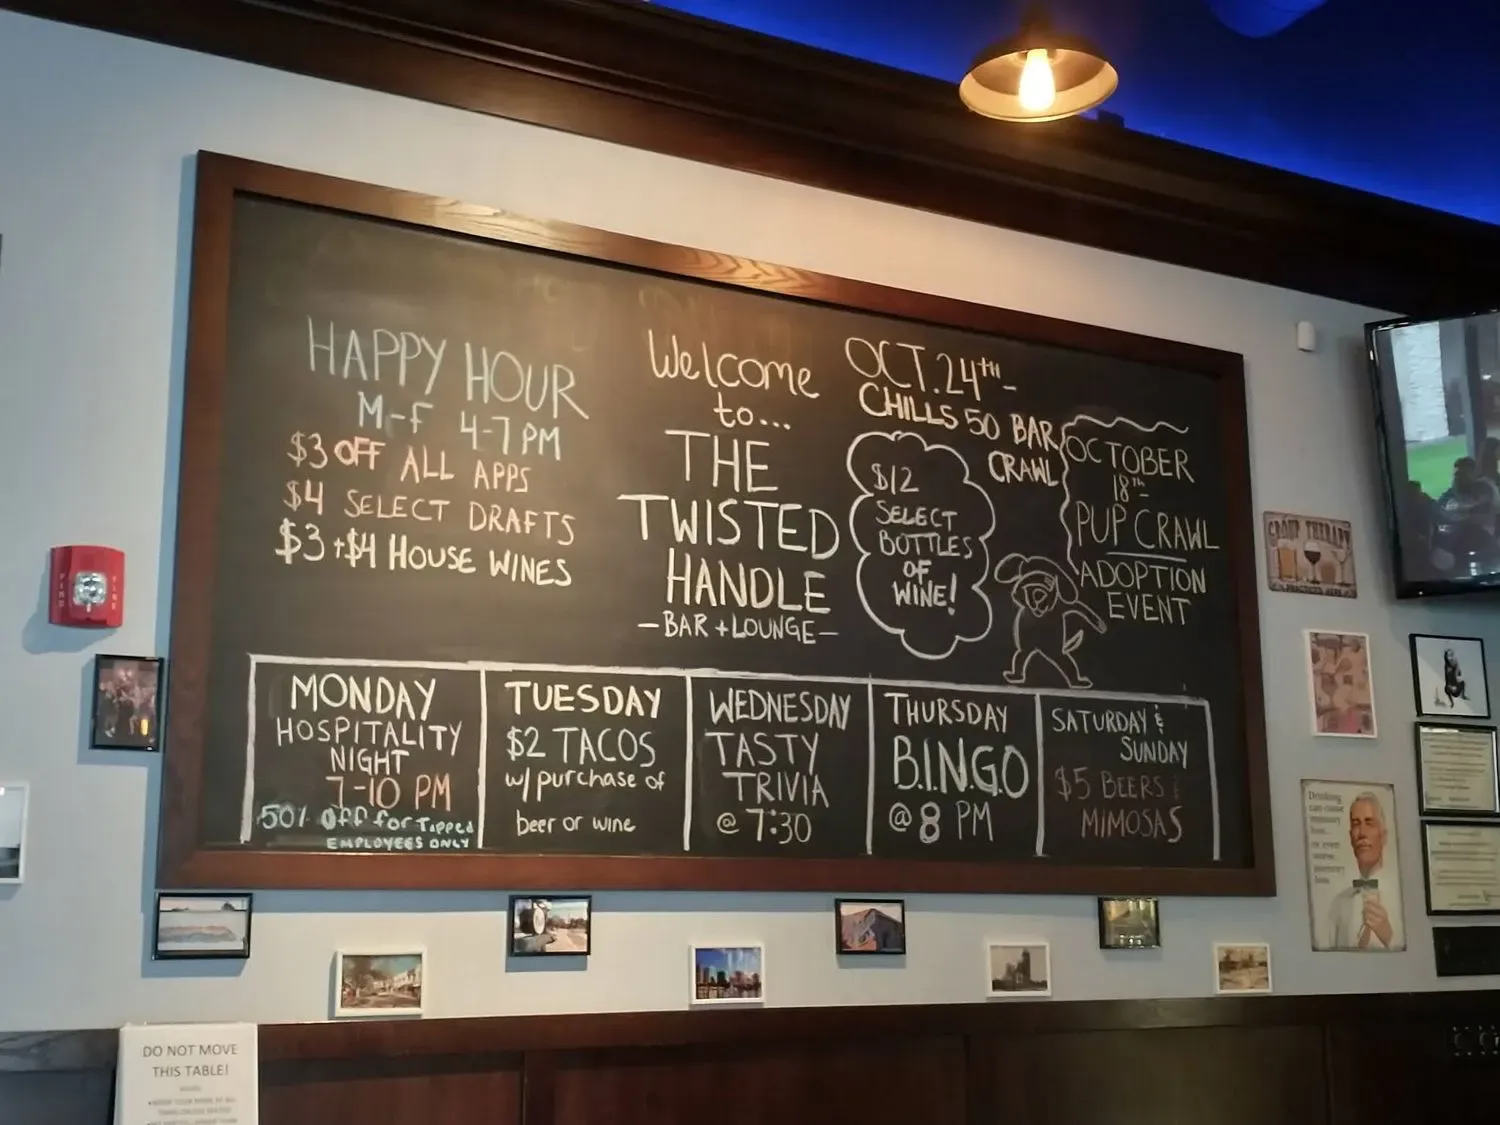 HAPPY HOUR
M-F 4-7 PM
$3 OFF ALL APPS
$4 SELECT DRAFTS
$3+$4 HOUSE WINES
Welcome
to...
THE
TWISTED
HANDLE
-BAR+LOUNGE-
OCT. 24TH-
CHILLS 50 BAR
CRAWL
$12
SELECT
BOTTLES
OF
WINE!
OCTOBER
18TH-
PUP CRAWL
ADOPTION
EVENT
MONDAY
HOSPITALITY
NIGHT
7-10 PM
50% Off for Tapped
EMPLOYEES ONLY
TUESDAY
$2 TACOS
w/ purchase of
beer or wine
WEDNESDAY
TASTY
TRIVIA
@ 7:30
THURSDAY
B.I.N.G.O
@ 8 PM
SATURDAY &
SUNDAY
$5 BEERS &
MIMOSAS
FIRE
FIRE
GROUP THERAPY
PRACTICED HERE
Drinking
can cause
memory
loss...
or even
worse,
memory
loss.
DO NOT MOVE
THIS TABLE!